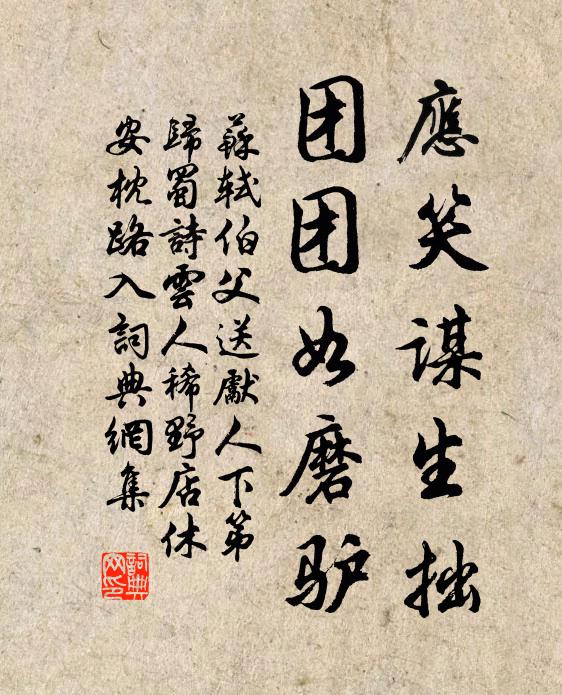 應笑謀生拙
团团如磨驴
蘇軾伯父送獻人下第
歸蜀詩雲人稀野店休
安枕路入詞典網集
詞典
网印